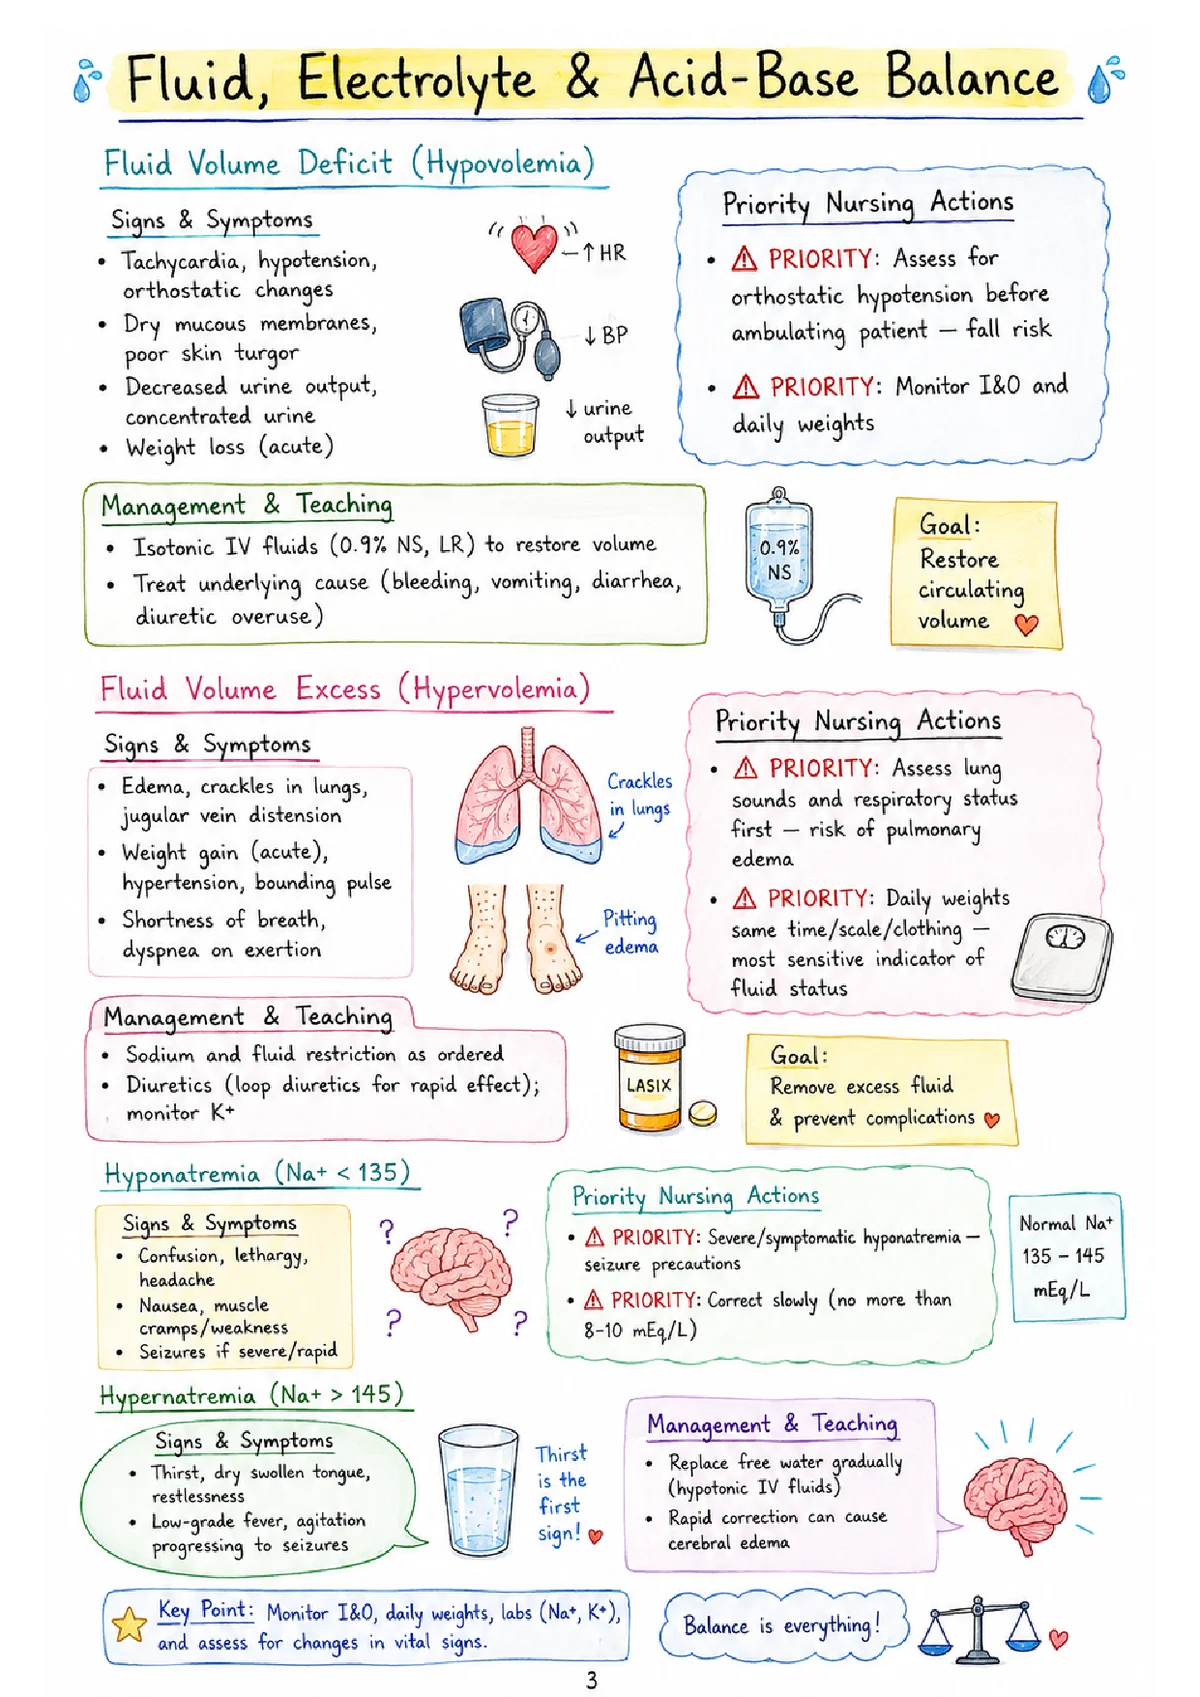 Fluid, Electrolyte & Acid-Base Balance
Fluid Volume Deficit (Hypovolemia)
Signs & Symptoms
• Tachycardia, hypotension,
orthostatic changes
• Dry mucous membranes,
poor skin turgor
• Decreased urine output,
concentrated urine
• Weight loss (acute)
↑ HR
↓ BP
↓ urine
output
Priority Nursing Actions
• ⚠ PRIORITY: Assess for
orthostatic hypotension before
ambulating patient — fall risk
• ⚠ PRIORITY: Monitor I&O and
daily weights
Management & Teaching
• Isotonic IV fluids (0.9% NS, LR) to restore volume
• Treat underlying cause (bleeding, vomiting, diarrhea,
diuretic overuse)
0.9%
NS
Goal:
Restore
circulating
volume
Fluid Volume Excess (Hypervolemia)
Signs & Symptoms
• Edema, crackles in lungs,
jugular vein distension
• Weight gain (acute),
hypertension, bounding pulse
• Shortness of breath,
dyspnea on exertion
Crackles
in lungs
Pitting
edema
Priority Nursing Actions
• ⚠ PRIORITY: Assess lung
sounds and respiratory status
first — risk of pulmonary
edema
• ⚠ PRIORITY: Daily weights
same time/scale/clothing —
most sensitive indicator of
fluid status
Management & Teaching
• Sodium and fluid restriction as ordered
• Diuretics (loop diuretics for rapid effect);
monitor K+
LASIX
Goal:
Remove excess fluid
& prevent complications
Hyponatremia (Na+ < 135)
Signs & Symptoms
• Confusion, lethargy,
headache
• Nausea, muscle
cramps/weakness
• Seizures if severe/rapid
? ?
? ?
Priority Nursing Actions
• ⚠ PRIORITY: Severe/symptomatic hyponatremia —
seizure precautions
• ⚠ PRIORITY: Correct slowly (no more than
8-10 mEq/L)
Normal Na⁺
135 - 145
mEq/L
Hypernatremia (Na+ > 145)
Signs & Symptoms
• Thirst, dry swollen tongue,
restlessness
• Low-grade fever, agitation
progressing to seizures
Thirst
is the
first
sign!
Management & Teaching
• Replace free water gradually
(hypotonic IV fluids)
• Rapid correction can cause
cerebral edema
Key Point: Monitor I&O, daily weights, labs (Na⁺, K⁺),
and assess for changes in vital signs.
Balance is everything!
3